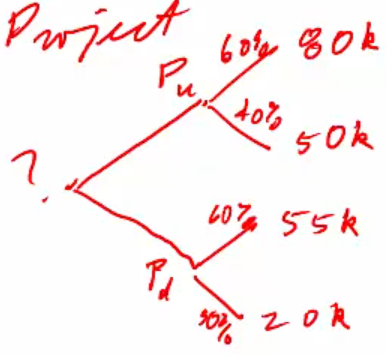 Project
60% 80k
Pu
40%
50k
?
60% 55k
Pd
20k